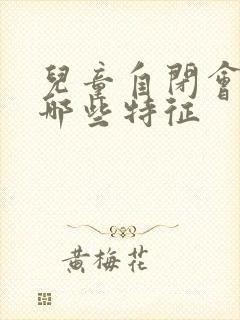 兒童自閉會
哪些特征
黄梅花